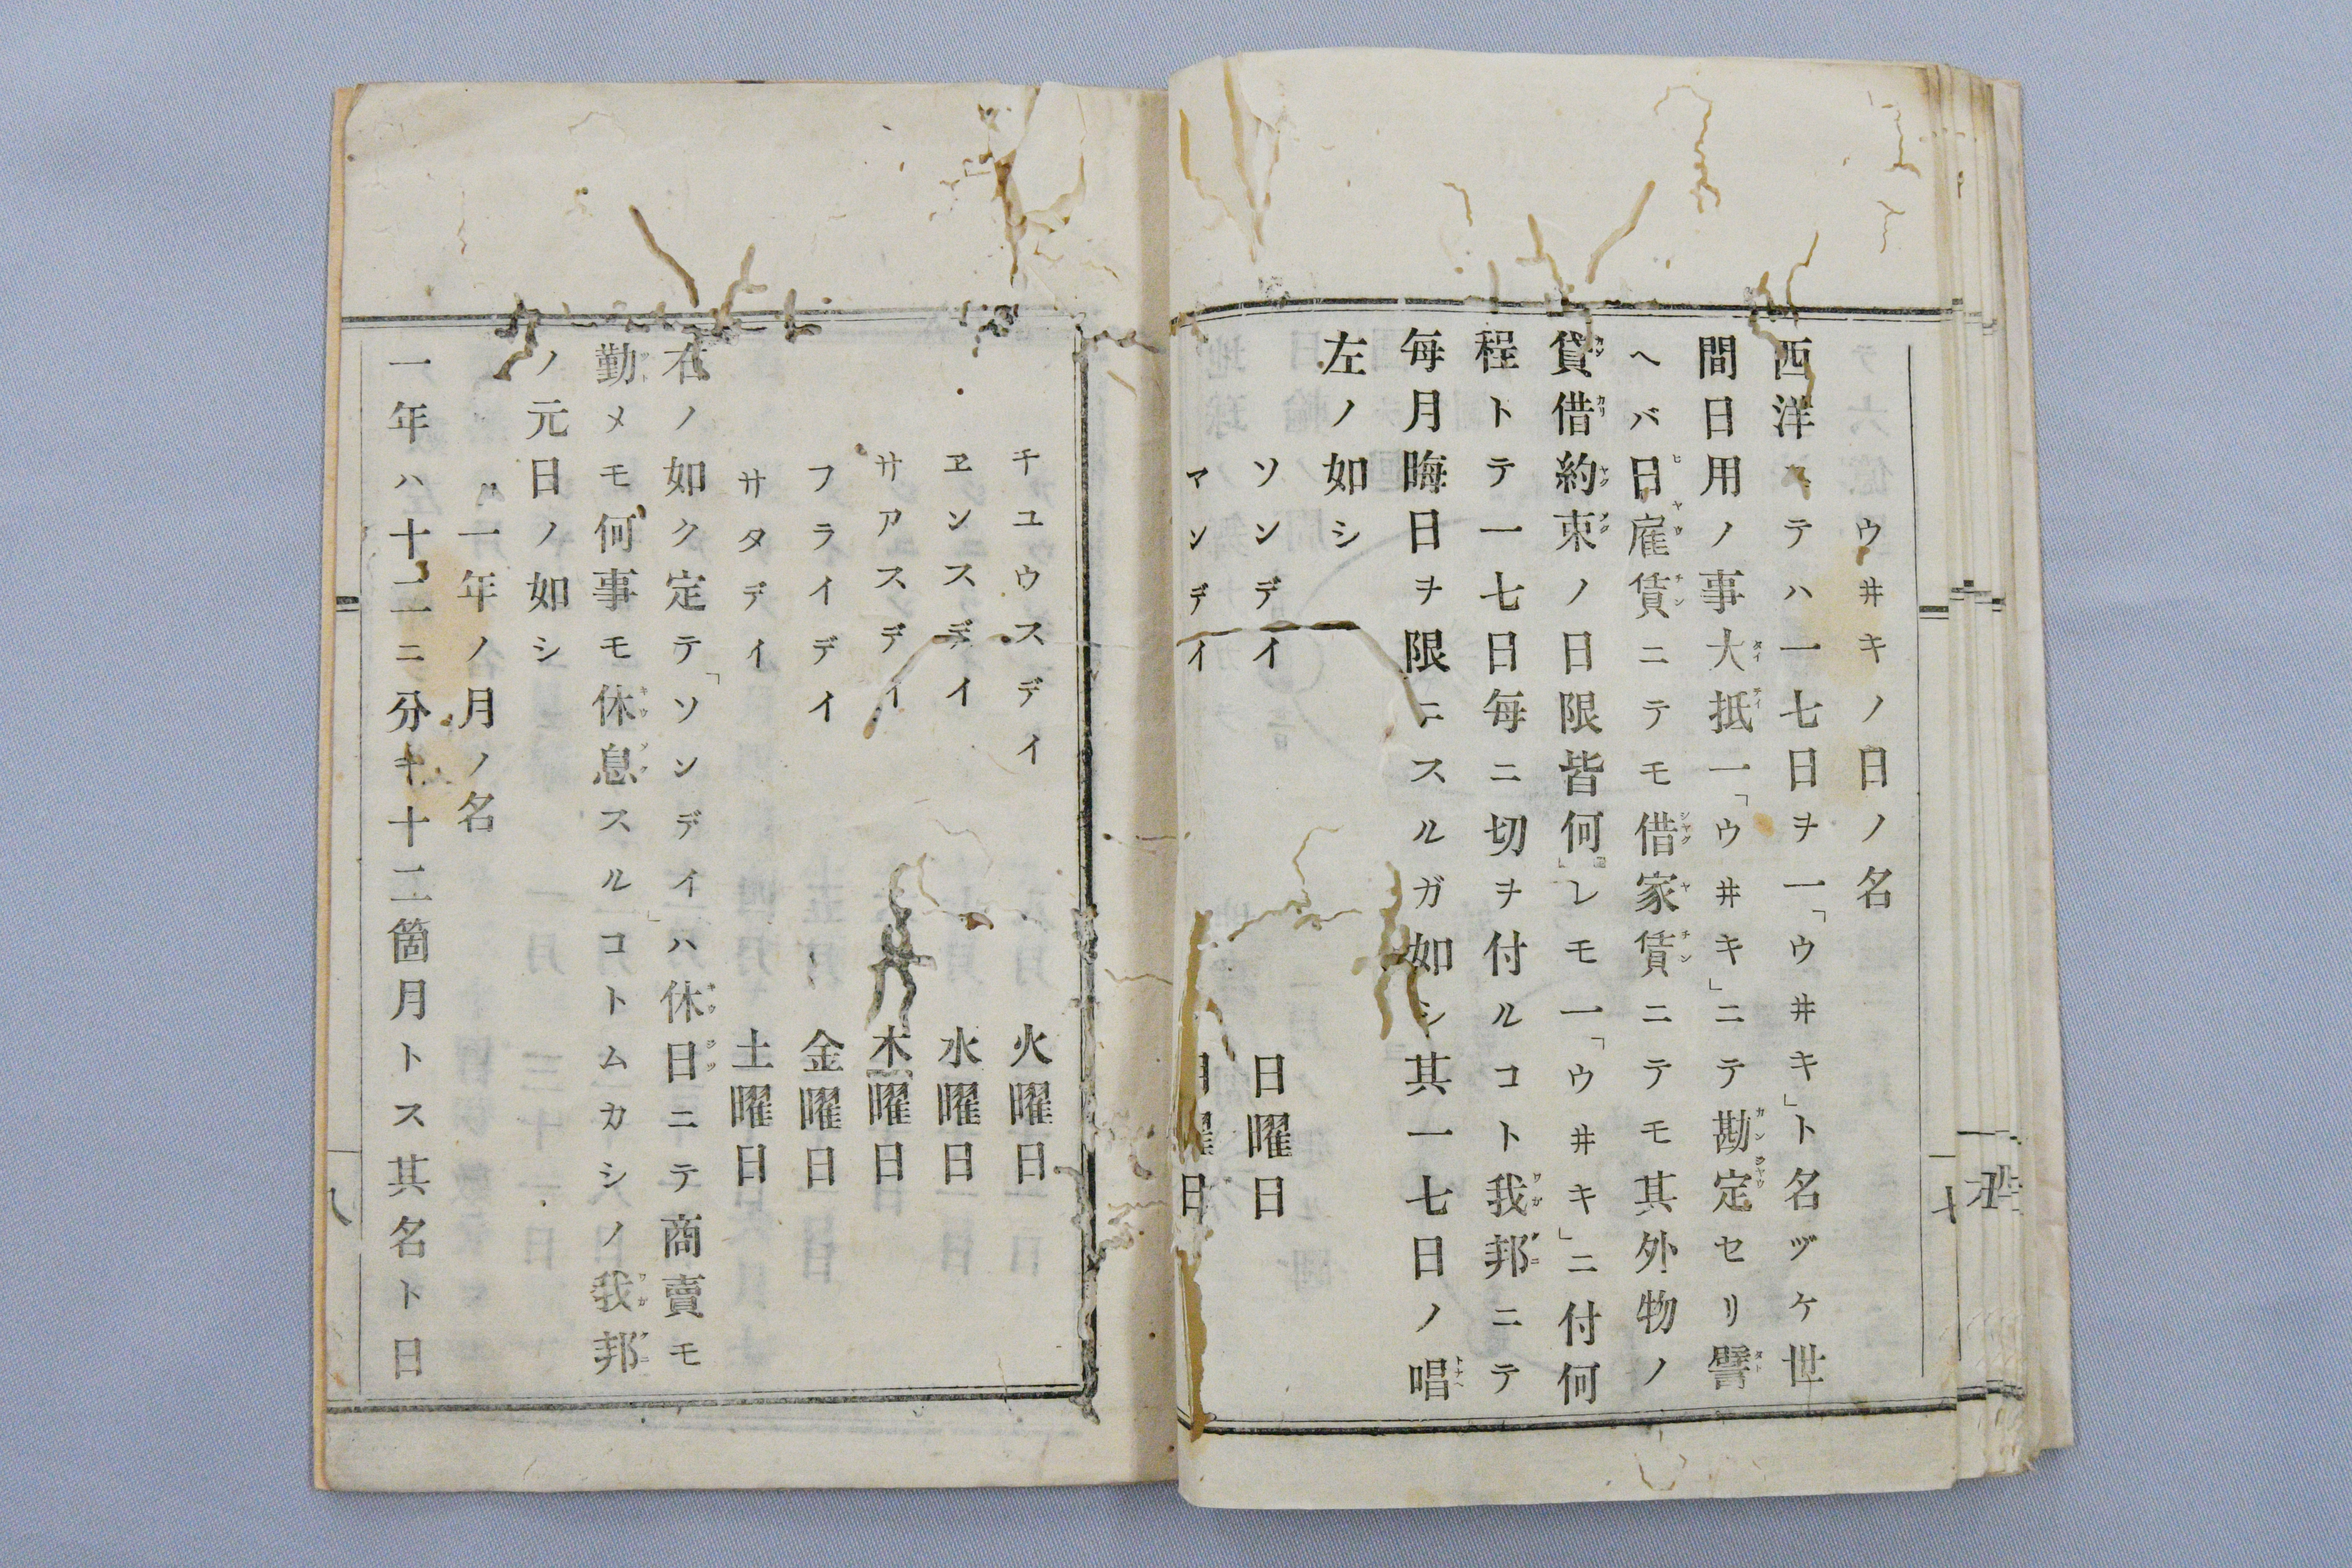 ウ井キノ日ノ名
西洋ニテハ一七日ヲ一「ウ井キ」ト名ヅケ世
間日用ノ事大抵一「ウ井キ」ニテ勘定セリ譬
ヘバ日雇賃ニテモ借家賃ニテモ其外物ノ
貸借約束ノ日限皆何レモ一「ウ井キ」ニ付何
程トテ一七日毎ニ切ヲ付ルコト我邦ニテ
毎月晦日ヲ限ニスルガ如シ其一七日ノ唱
左ノ如シ
ソンデイ 日曜日
マンデイ 月曜日
チユウスデイ 火曜日
ヱンスデイ 水曜日
サアスデイ 木曜日
フライデイ 金曜日
サタデイ 土曜日
右ノ如ク定テ「ソンデイ」ハ休日ニテ商賣モ
勤メモ何事モ休息スルコトムカシノ我邦
ノ元日ノ如シ
一年ノ月ノ名
一年ハ十二ニ分チ十二箇月トス其名ト日